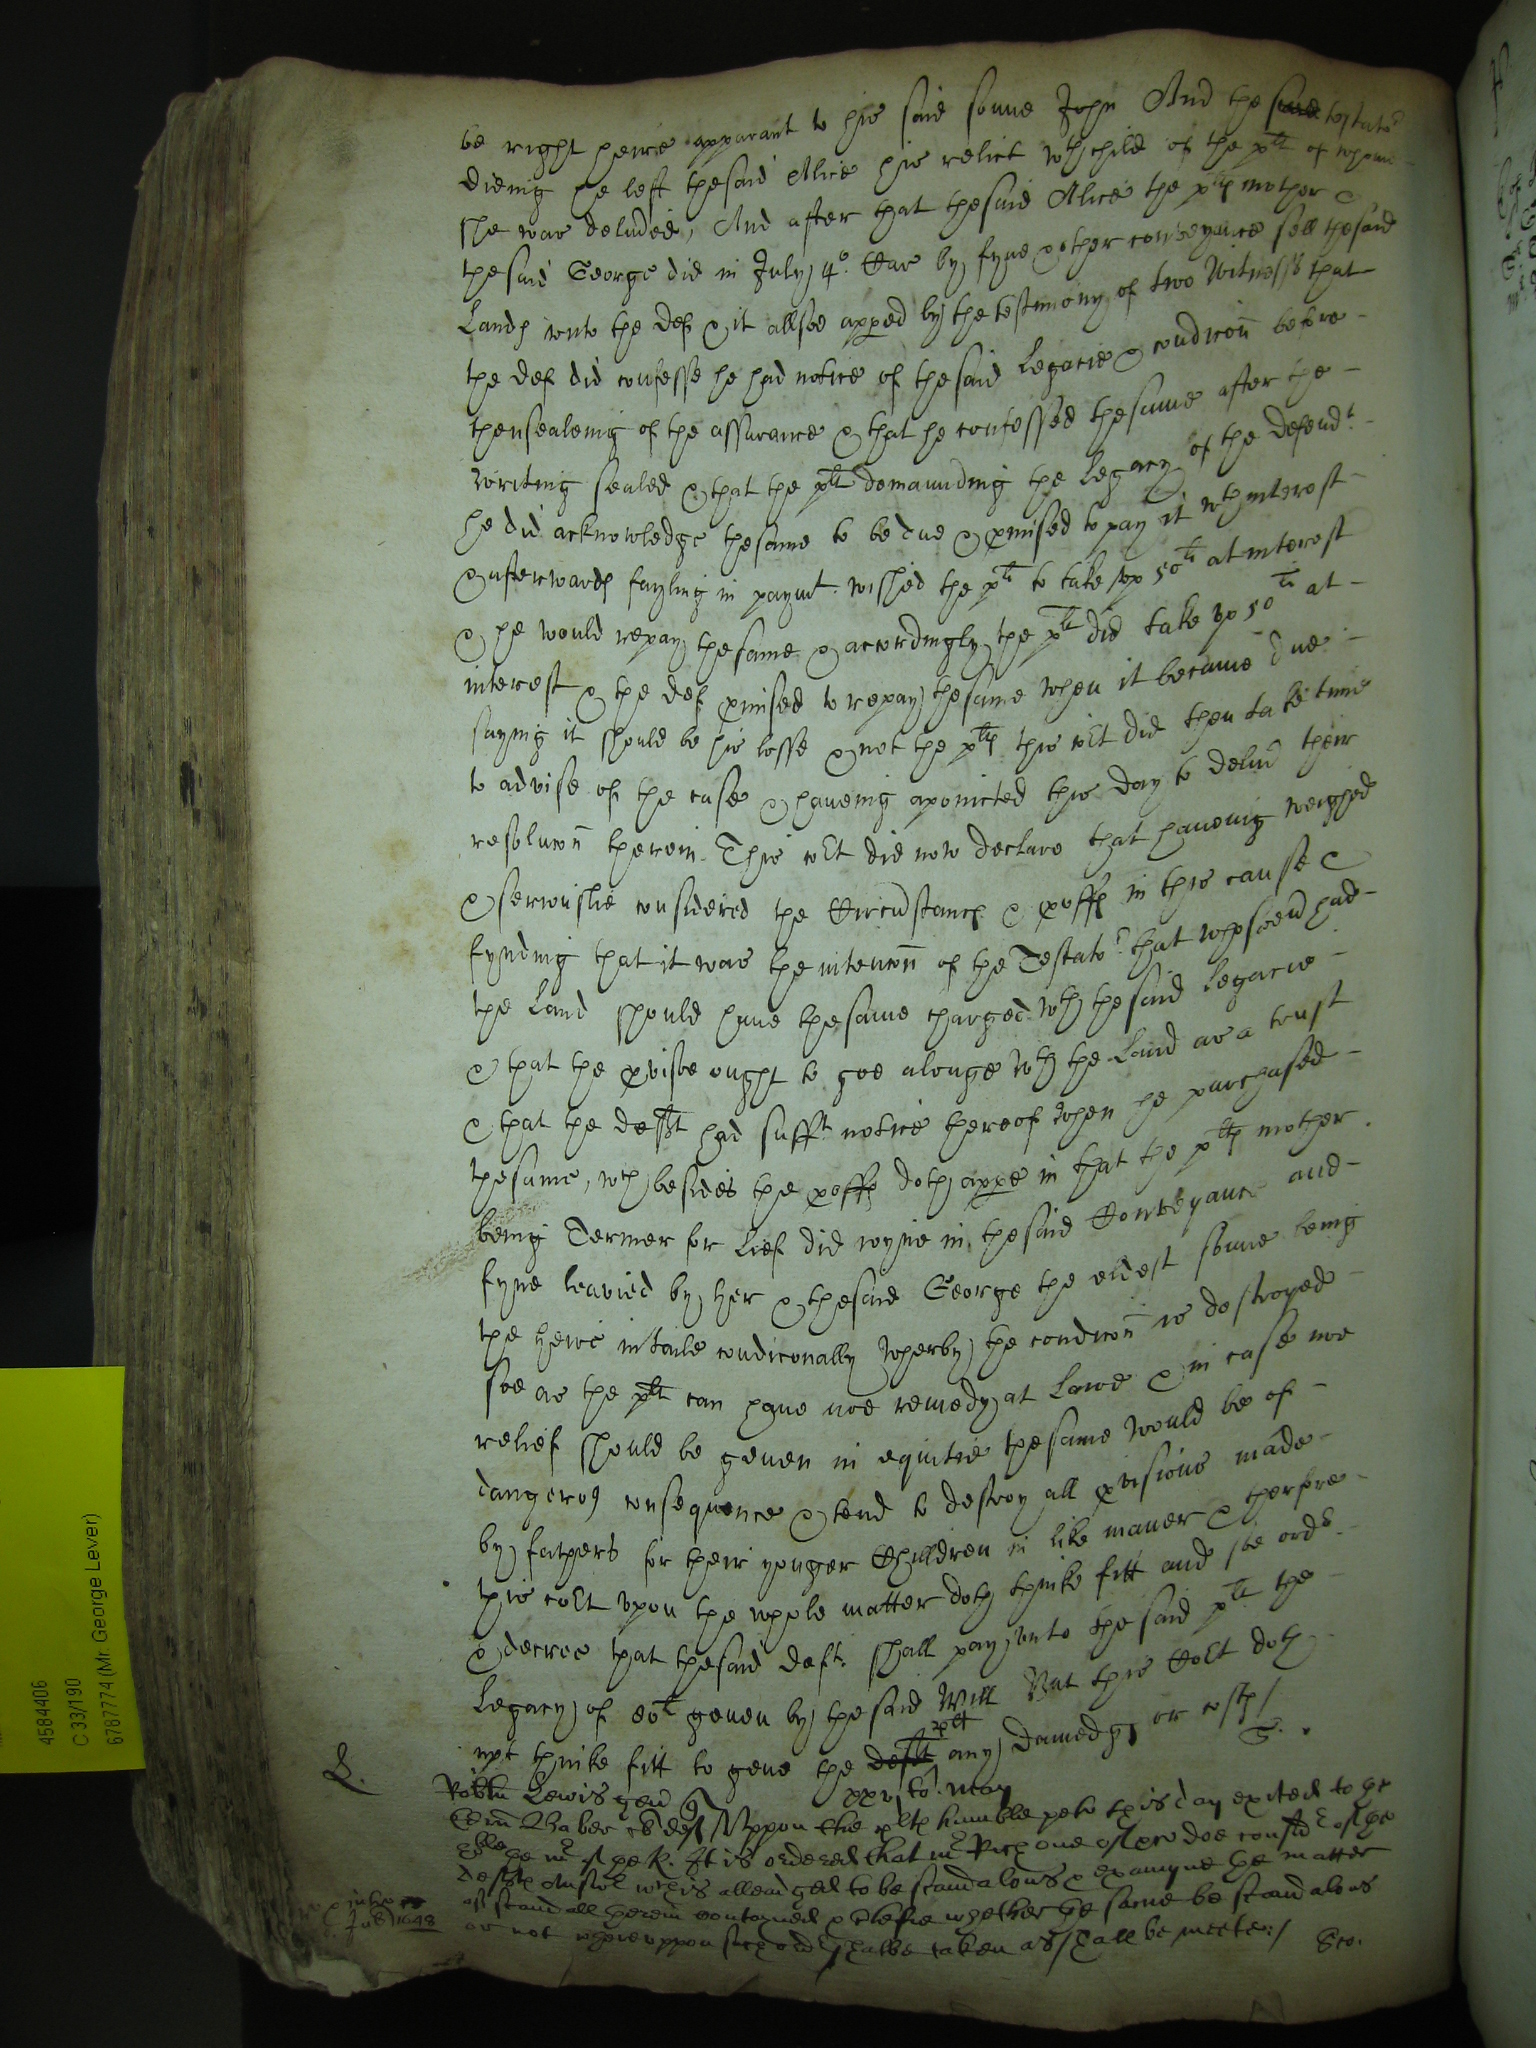 be right heire apparant to his said sonne John And the said testator
dieing he left thesaid Alice his relict wth child of the plt of whom
she was deliv̄ed, And after that thesaid Alice the plts mother &
thesaid George did in July 4o Car by fyne & other conveyance sell thesaid
Lands vnto the Def & it allsoe apped by the testimony of two Witnesses that
the Def did confesse he had notice of thesaid Legacie & condicōn before
thensealeing of the assurance & that he confessed thesame after the
writing sealed & that the plt demaunding the Legacy of the Defendt
he did acknowledge thesame to be due & pmised to pay it wth interest
& afterwards fayling in paymt wished the plt to take vp 50li at interest
& he would repay thesame & accordingly the plt did take vp 50li at
interest & the def pmised to repay thesame when it became due
saying it should be his losse & not the plts this cot did then take time
to advise of the case & haueing apointed this day to deliv̄ their
resolucōn therein. This cot did now declare that haueing weighed
& seriouslie considered the Circumstances & proffs in this cause &
fynding that it was the intencōn of the Testator that whosoeū had
the Land should haue thesame charged wth thesaid Legacie
& that the pvisoe ought to goe alonge wth the Land as a trust
& that the deft had sufft notice thereof when he purchased
thesame, wch besides the proffs doth appe in that the plts mother
being Termer for Lief did ioyne in thesaid Conveyance and
fyne leavied by her & thesaid George the eldest sonne being
the heire in taile condiconally wherby the condicōn is destroyed
soe as the plt can haue noe remedy at Lawe & in case noe
relief should be geuen in equitie thesame would be of
dangerous consequence & tend to destroy all pvisions made
by fathers for their yonger Children in like maner & therfore
this cot vpon the whole matter doth thinke fitt and soe ordr
& decree that thesaid deft shall pay vnto the said plt the
Legacy of 80li geuen by thesaid Will But this Cot doth
not thinke fitt to geue the deft plt any damedgs or costs /
xxvito May
L.
Lewis gen
Baber deft Vppon the plts humble petn this day exited to the
the mr of the R. It is ordered that mr Rich one of doe considr of the
defts Answer wch is alleadged to be scandalous & examyne the matter
of scandall herein contayned & ctefie whether the same be scandalous
or not wherevppon such ordr shalbe taken as shall be meete: /
4584406
C 33/190
6787774 (Mr. George Lever)